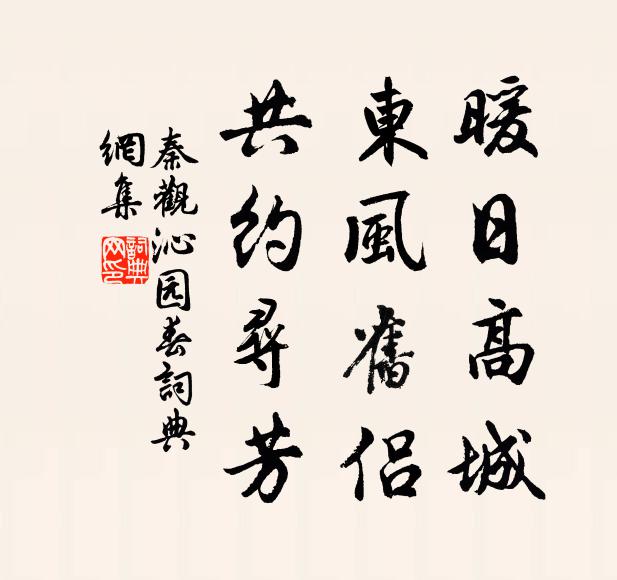 暖日高城
東風舊侣
共約尋芳
秦觀沁园春詞典
網集
詞典
网印